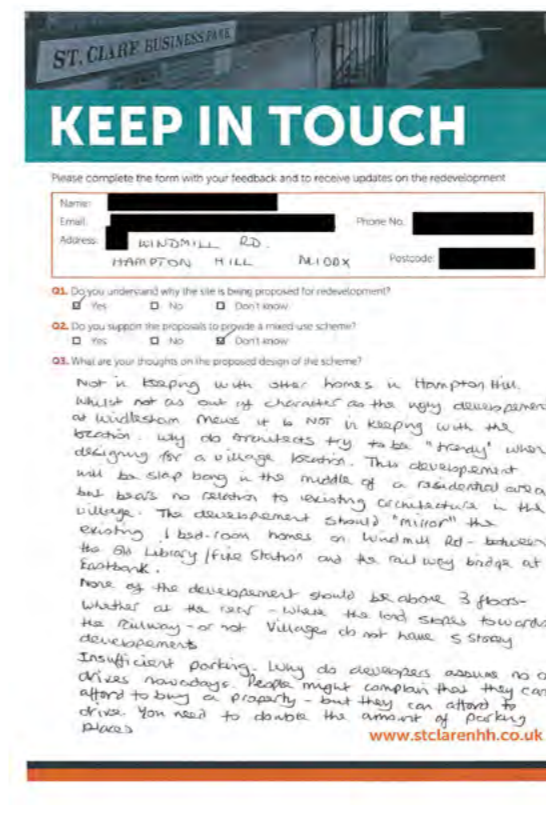 ST. CLARE BUSINESS PARK
KEEP IN TOUCH
Please complete the form with your feedback and to receive updates on the redevelopment
Name:
Email: Phone No.
Address: WINDMILL RD.
HAMPTON HILL MIDDX Postcode:
Q1. Do you understand why the site is being proposed for redevelopment?
Yes No Don't know
Q2. Do you support the proposals to provide a mixed use scheme?
Yes No Don't know
Q3. What are your thoughts on the proposed design of the scheme?
Not in keeping with other homes in Hampton Hill.
Whilst not as out of character as the ugly developement
at Windlesham Mews it is NOT in keeping with the
location. Why do architects try to be "trendy" when
designing for a village location. This developement
will be slap bang in the middle of a residential area
but bears no relation to existing architecture in the
village. The developement should "mirror" the
existing 1 bed-room homes on Windmill Rd - between
the Old Library / Fire Station and the railway bridge at
Eastbank.
None of the developement should be above 3 floors -
whether at the rear - where the land slopes towards
the railway - or not Villages do not have 5 storey
developements
Insufficient parking. Why do developers assume no o
drives nowadays. People might complain that they can
afford to buy a property - but they can afford to
drive. You need to double the amount of parking
places
www.stclarenhh.co.uk